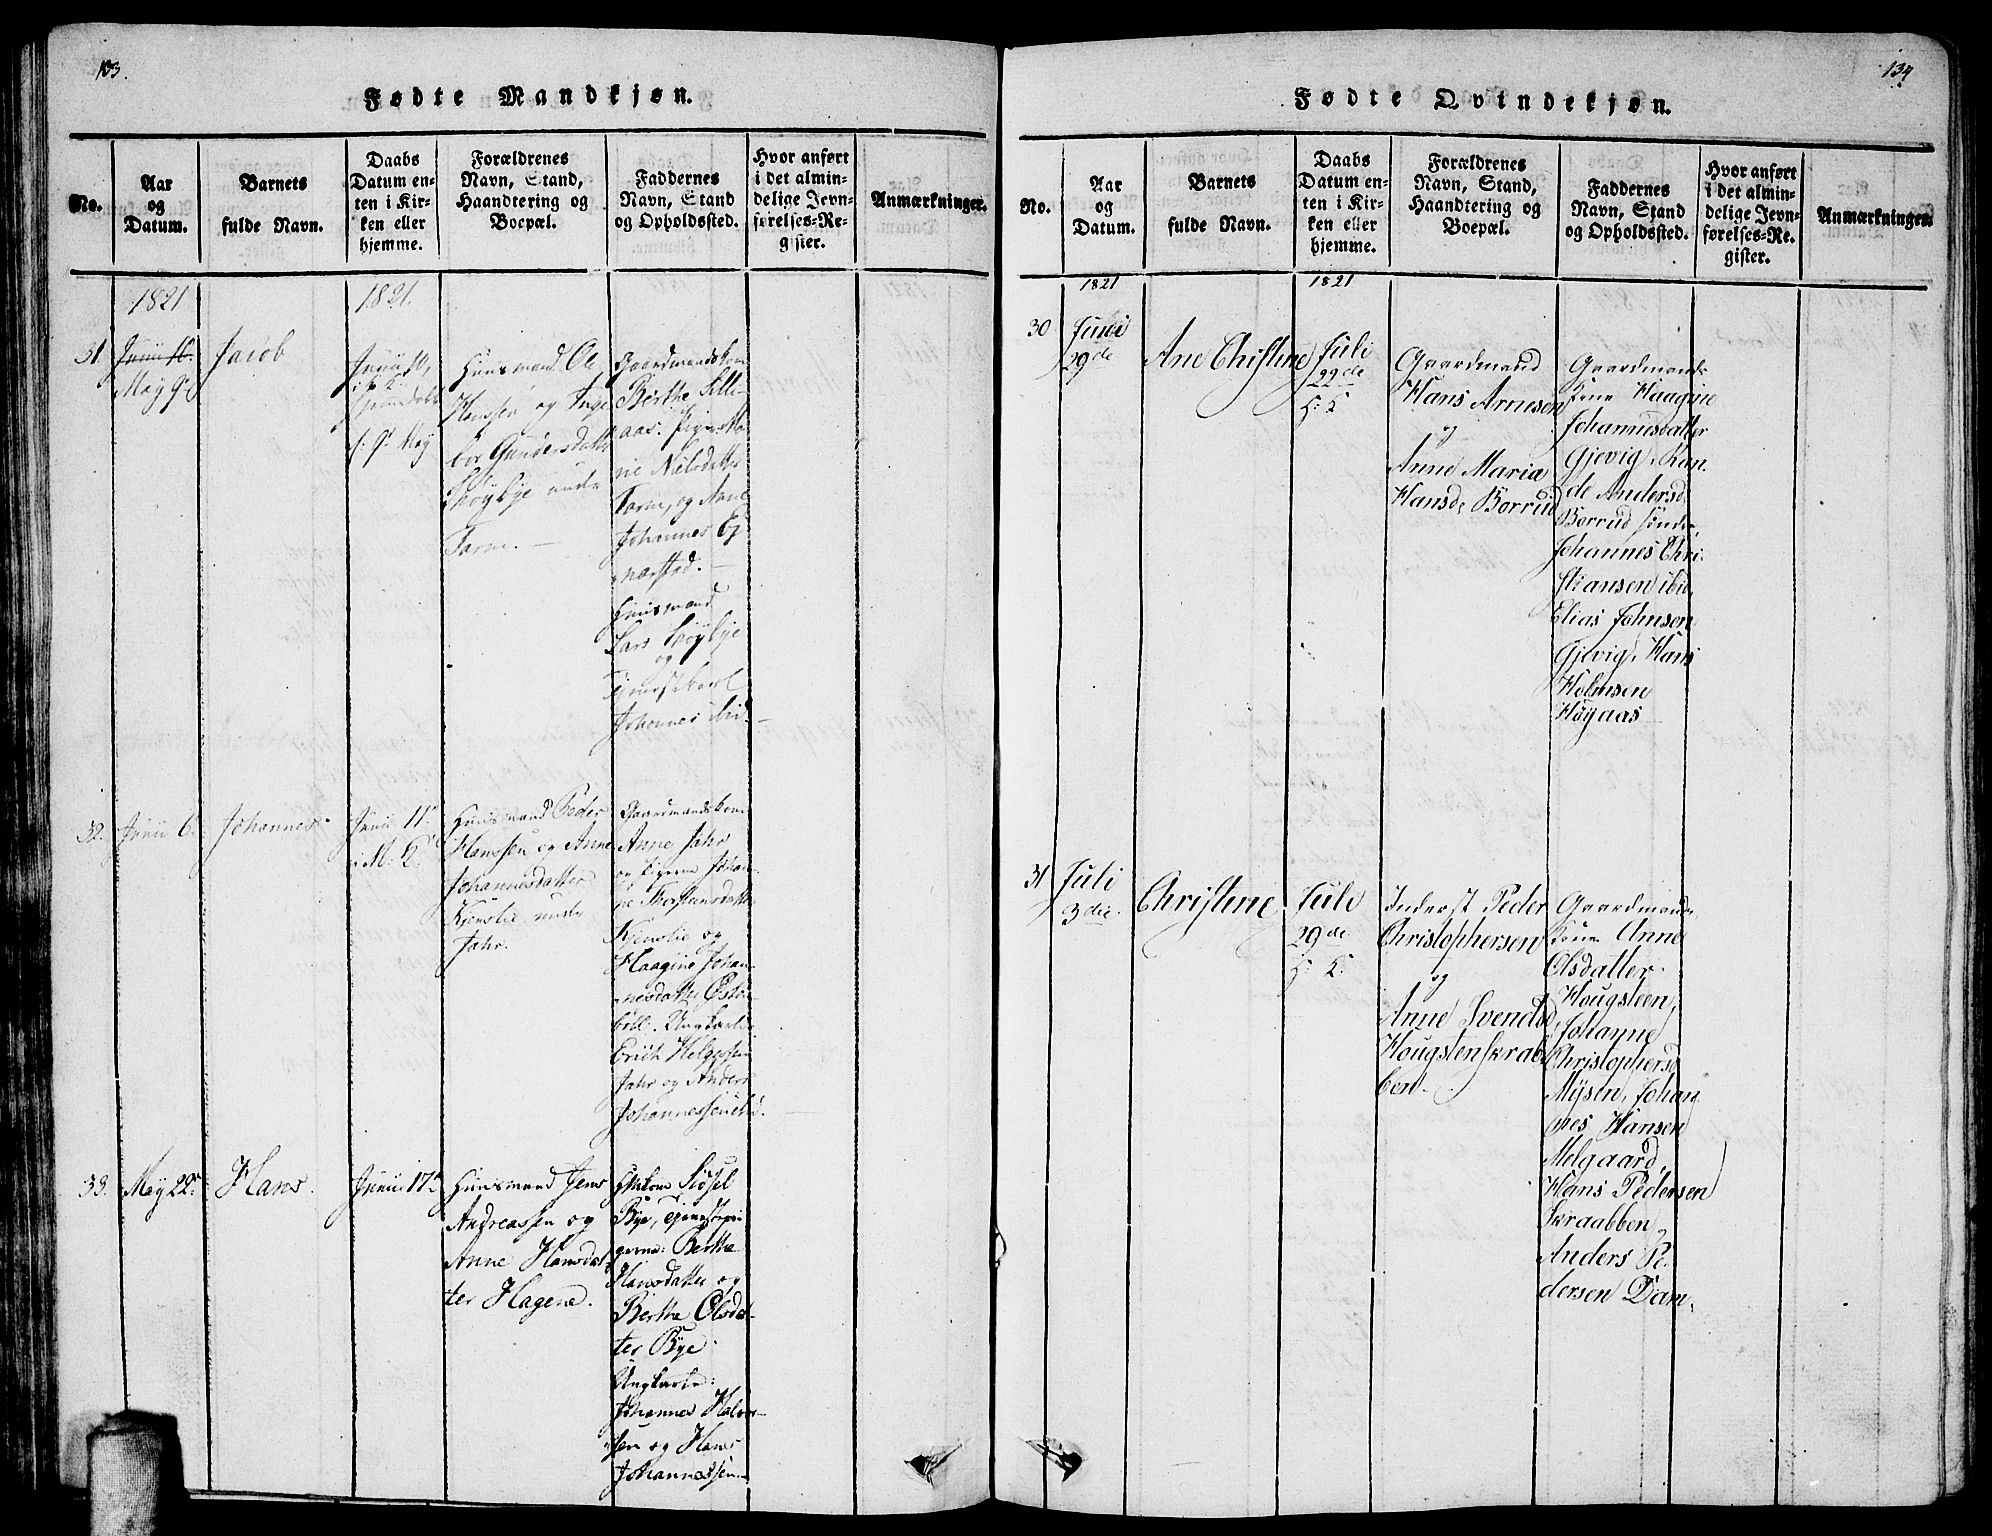 103.
Fødte Mandkjøn.
No.
Aar
og
Datum.
Barnets
fulde Navn.
Daabs
Datum en-
ten i Kir-
ken eller
hjemme.
Forældrenes
Navn, Stand,
Haandtering og
Boepæl.
Faddernes
Navn, Stand
og Opholdssted.
Hvor anført
i det almin-
delige Jevn-
førelses-Re-
gister.
Anmærkninger.
1821
1821.
31.
Junii 10.
May 9de
Jacob
Junii 10,
f. 9de May
Huusmand Ole
Hanssen og Inge
bor Gundersdatter
Høybye under
Torm. —
Gaardmandskone
Berthe Lille
aas. Pigerne Ma-
rie Nilsdatter
Torm, og Anne
Johannes Ej
nersted. —
Huusmand
Lars Høybye
og
Johannes ibid. —
32.
Junii 6.
Johannes
Junii 11te
i M. K.
Huusmand Peder
Hanssen og Anne
Johannesdatter
Kjenslie under
Jahr.
Gaardmandskone
Anne Jahr
og Pigerne Johan-
ne Thorstensdatter
Kjenslie og
Haagine Johan-
nesdatter Østen
böll. Ungkarle
Erich Helgessen
Jahr og Anders
Johannessen ibid. —
33.
May 22de
Hans.
Junii 17de
Huusmand Jens
Andreassen og
Anne Hansdat-
ter Hagene.
Sidsel
Bye, Tjenestepi-
gerne: Berthe
Hansdatter og
Berthe Olsdat-
ter Bye.
Ungkarle:
Johannes Halvor-
sen og Hans
Johannessen. —
134
Fødte Qvindekjøn.
No.
Aar
og
Datum.
Barnets
fulde Navn.
Daabs
Datum en-
ten i Kir-
ken eller
hjemme.
Forældrenes
Navn, Stand,
Haandtering og
Boepæl.
Faddernes
Navn, Stand
og Opholdssted.
Hvor anført
i det almin-
delige Jevn-
førelses-Re-
gister.
Anmærkninger.
1821
1821
30
Juni
29de
Ane Christine
Juli
22de
H: K
Gaardmand
Hans Arnesen
og
Anne Maria
Hansd. Borrud
Gaardmands
kone Haagine
Johannesdatter
Gjevig, Ran-
de Andersd.
Borrud søndre
Johannes Chri-
stiansen ibid,
Elias Johnsen
Gjevig, Hans
Holmsen
Høyaas
31
Juli
3die.
Christine
Juli
29de
H: K:
Inderst Peder
Christophersen
og
Anne Svendsd.
Hougstenskrab-
ben.
Gaardmands
kone Anne
Olsdatter
Hougsteen,
Johanne
Christophersd
Mysen, Johan
nes Hansen
Melgaard,
Hans Pedersen
Skraabben,
Anders Pe-
dersen Dam.